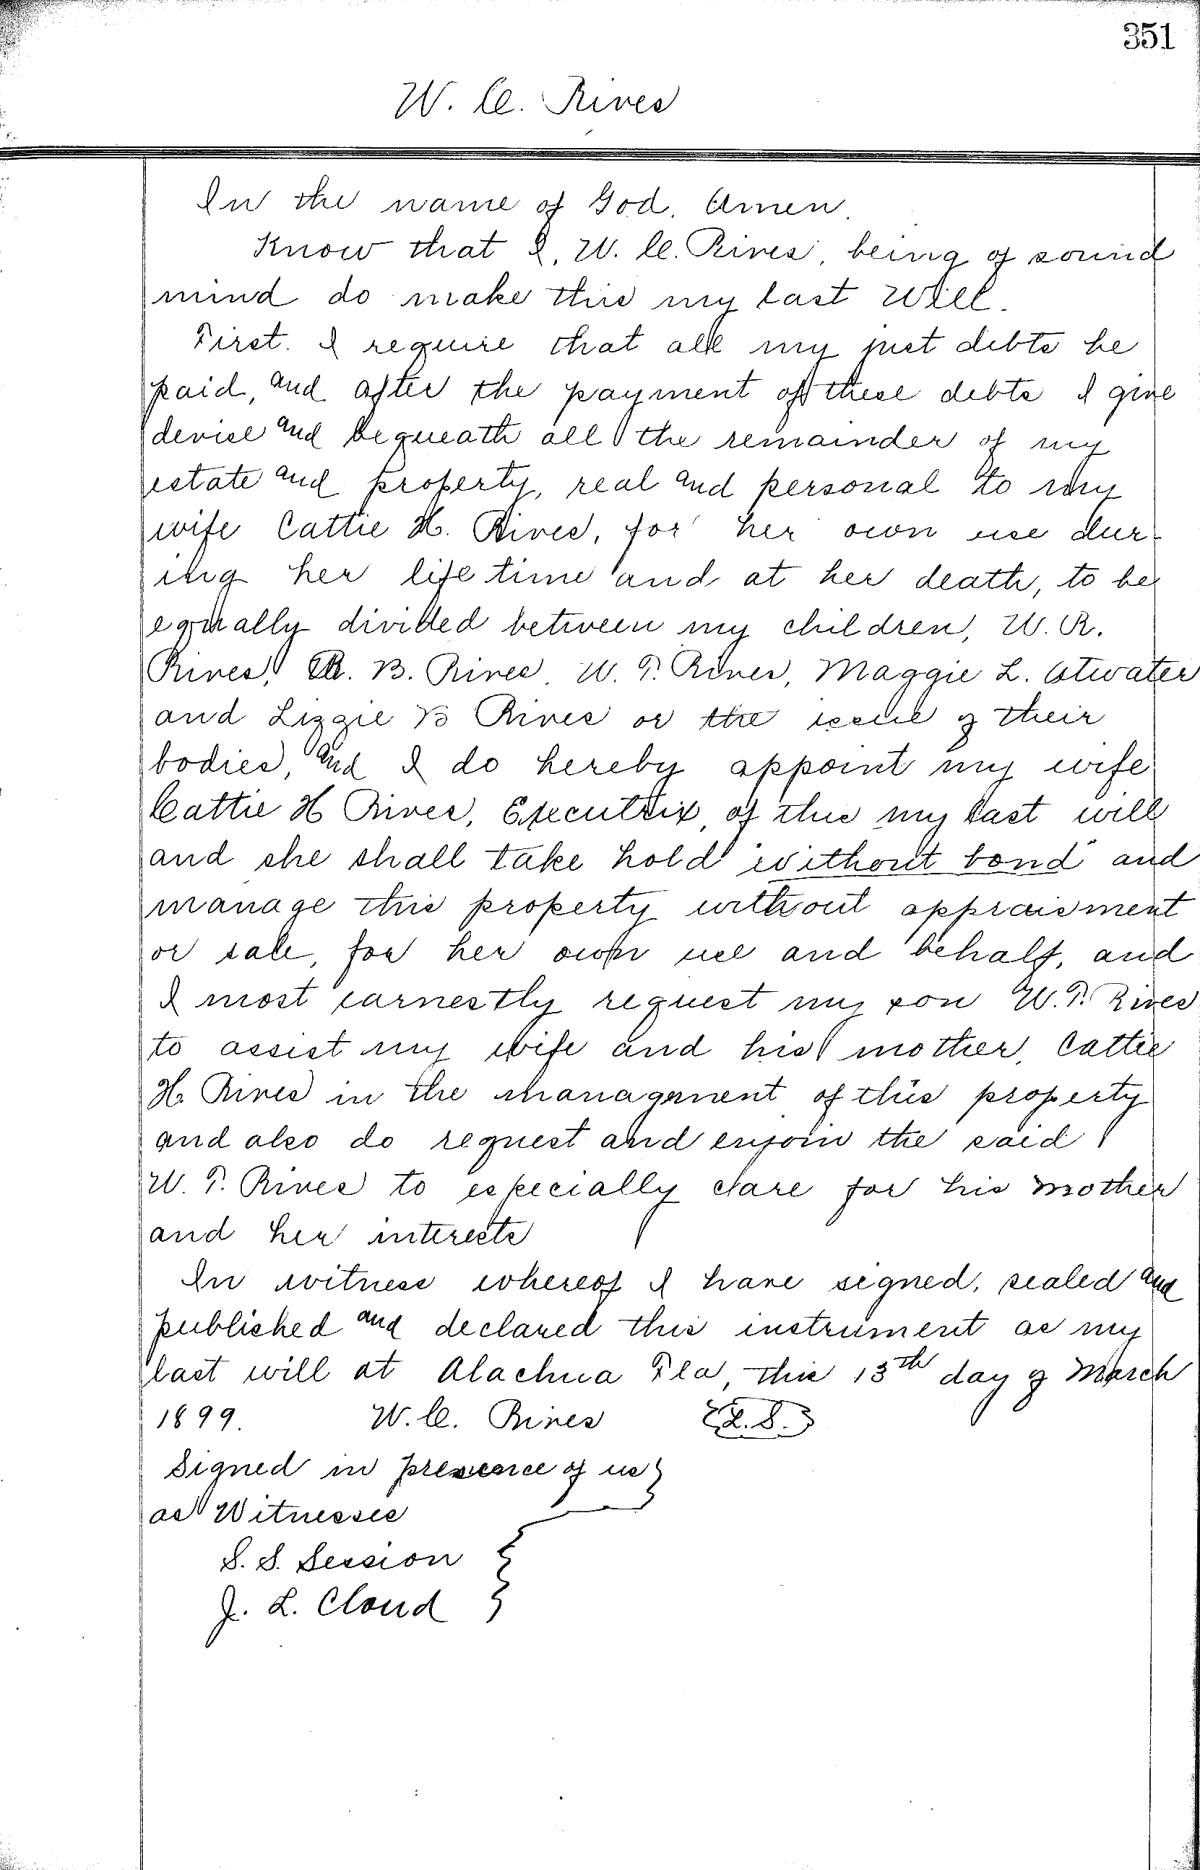 351
W. C. Rives
In the name of God. Amen.
Know that I, W. C. Rives, being of sound
mind do make this my last Will.
First. I require that all my just debts be
paid, and after the payment of these debts I give
devise and bequeath all the remainder of my
estate and property, real and personal to my
wife Cattie H. Rives, for her own use dur-
ing her life time and at her death, to be
equally divided between my children, W. R.
Rives, R. B. Rives. W. P. Rives, Maggie L. Atwater
and Lizzie B Rives or the issue of their
bodies, and I do hereby appoint my wife
Cattie H Rives, Executrix, of this my last will
and she shall take hold "without bond" and
manage this property without appraisment
or sale, for her own use and behalf, and
I most earnestly request my son W. P. Rives
to assist my wife and his mother, Cattie
H. Rives in the managment of this property
and also do request and enjoin the said
W. P. Rives to especially care for his mother
and her interests
In witness whereof I have signed, sealed and
published and declared this instrument as my
last will at Alachua Fla, this 13th day of March
1899. W. C. Rives {L.S.}
Signed in presence of us }
as Witnesses
S. S. Session }
J. L. Cloud }